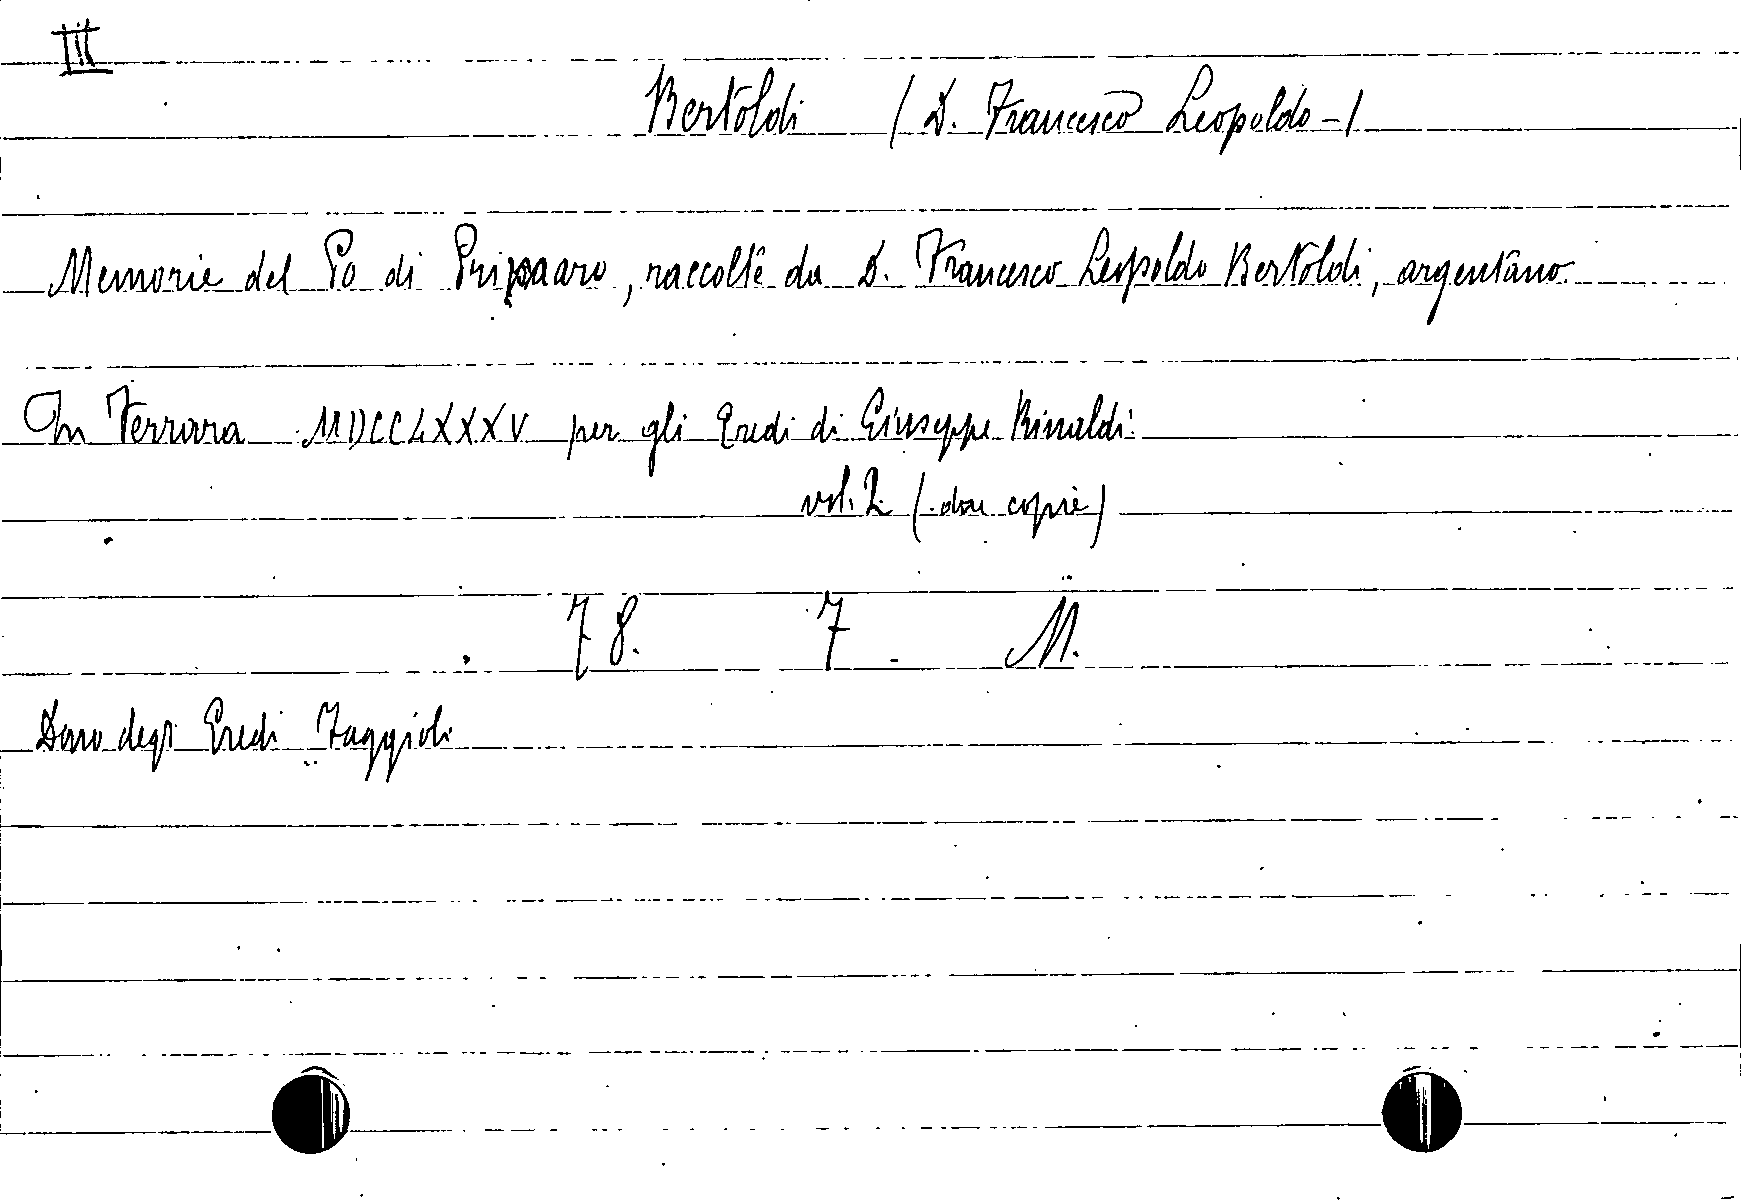 III
Bertoldi (D. Francesco Leopoldo-)
Memorie del Po di Pripaaro, raccolte da D. Francesco Leopoldo Bertoldi, argentano.
In Ferrara MDCCLXXXV per gli Eredi di Giuseppe Rinaldi.
vol. 2 (due copie)
78. 7 M.
Dono degli Eredi Faggioli